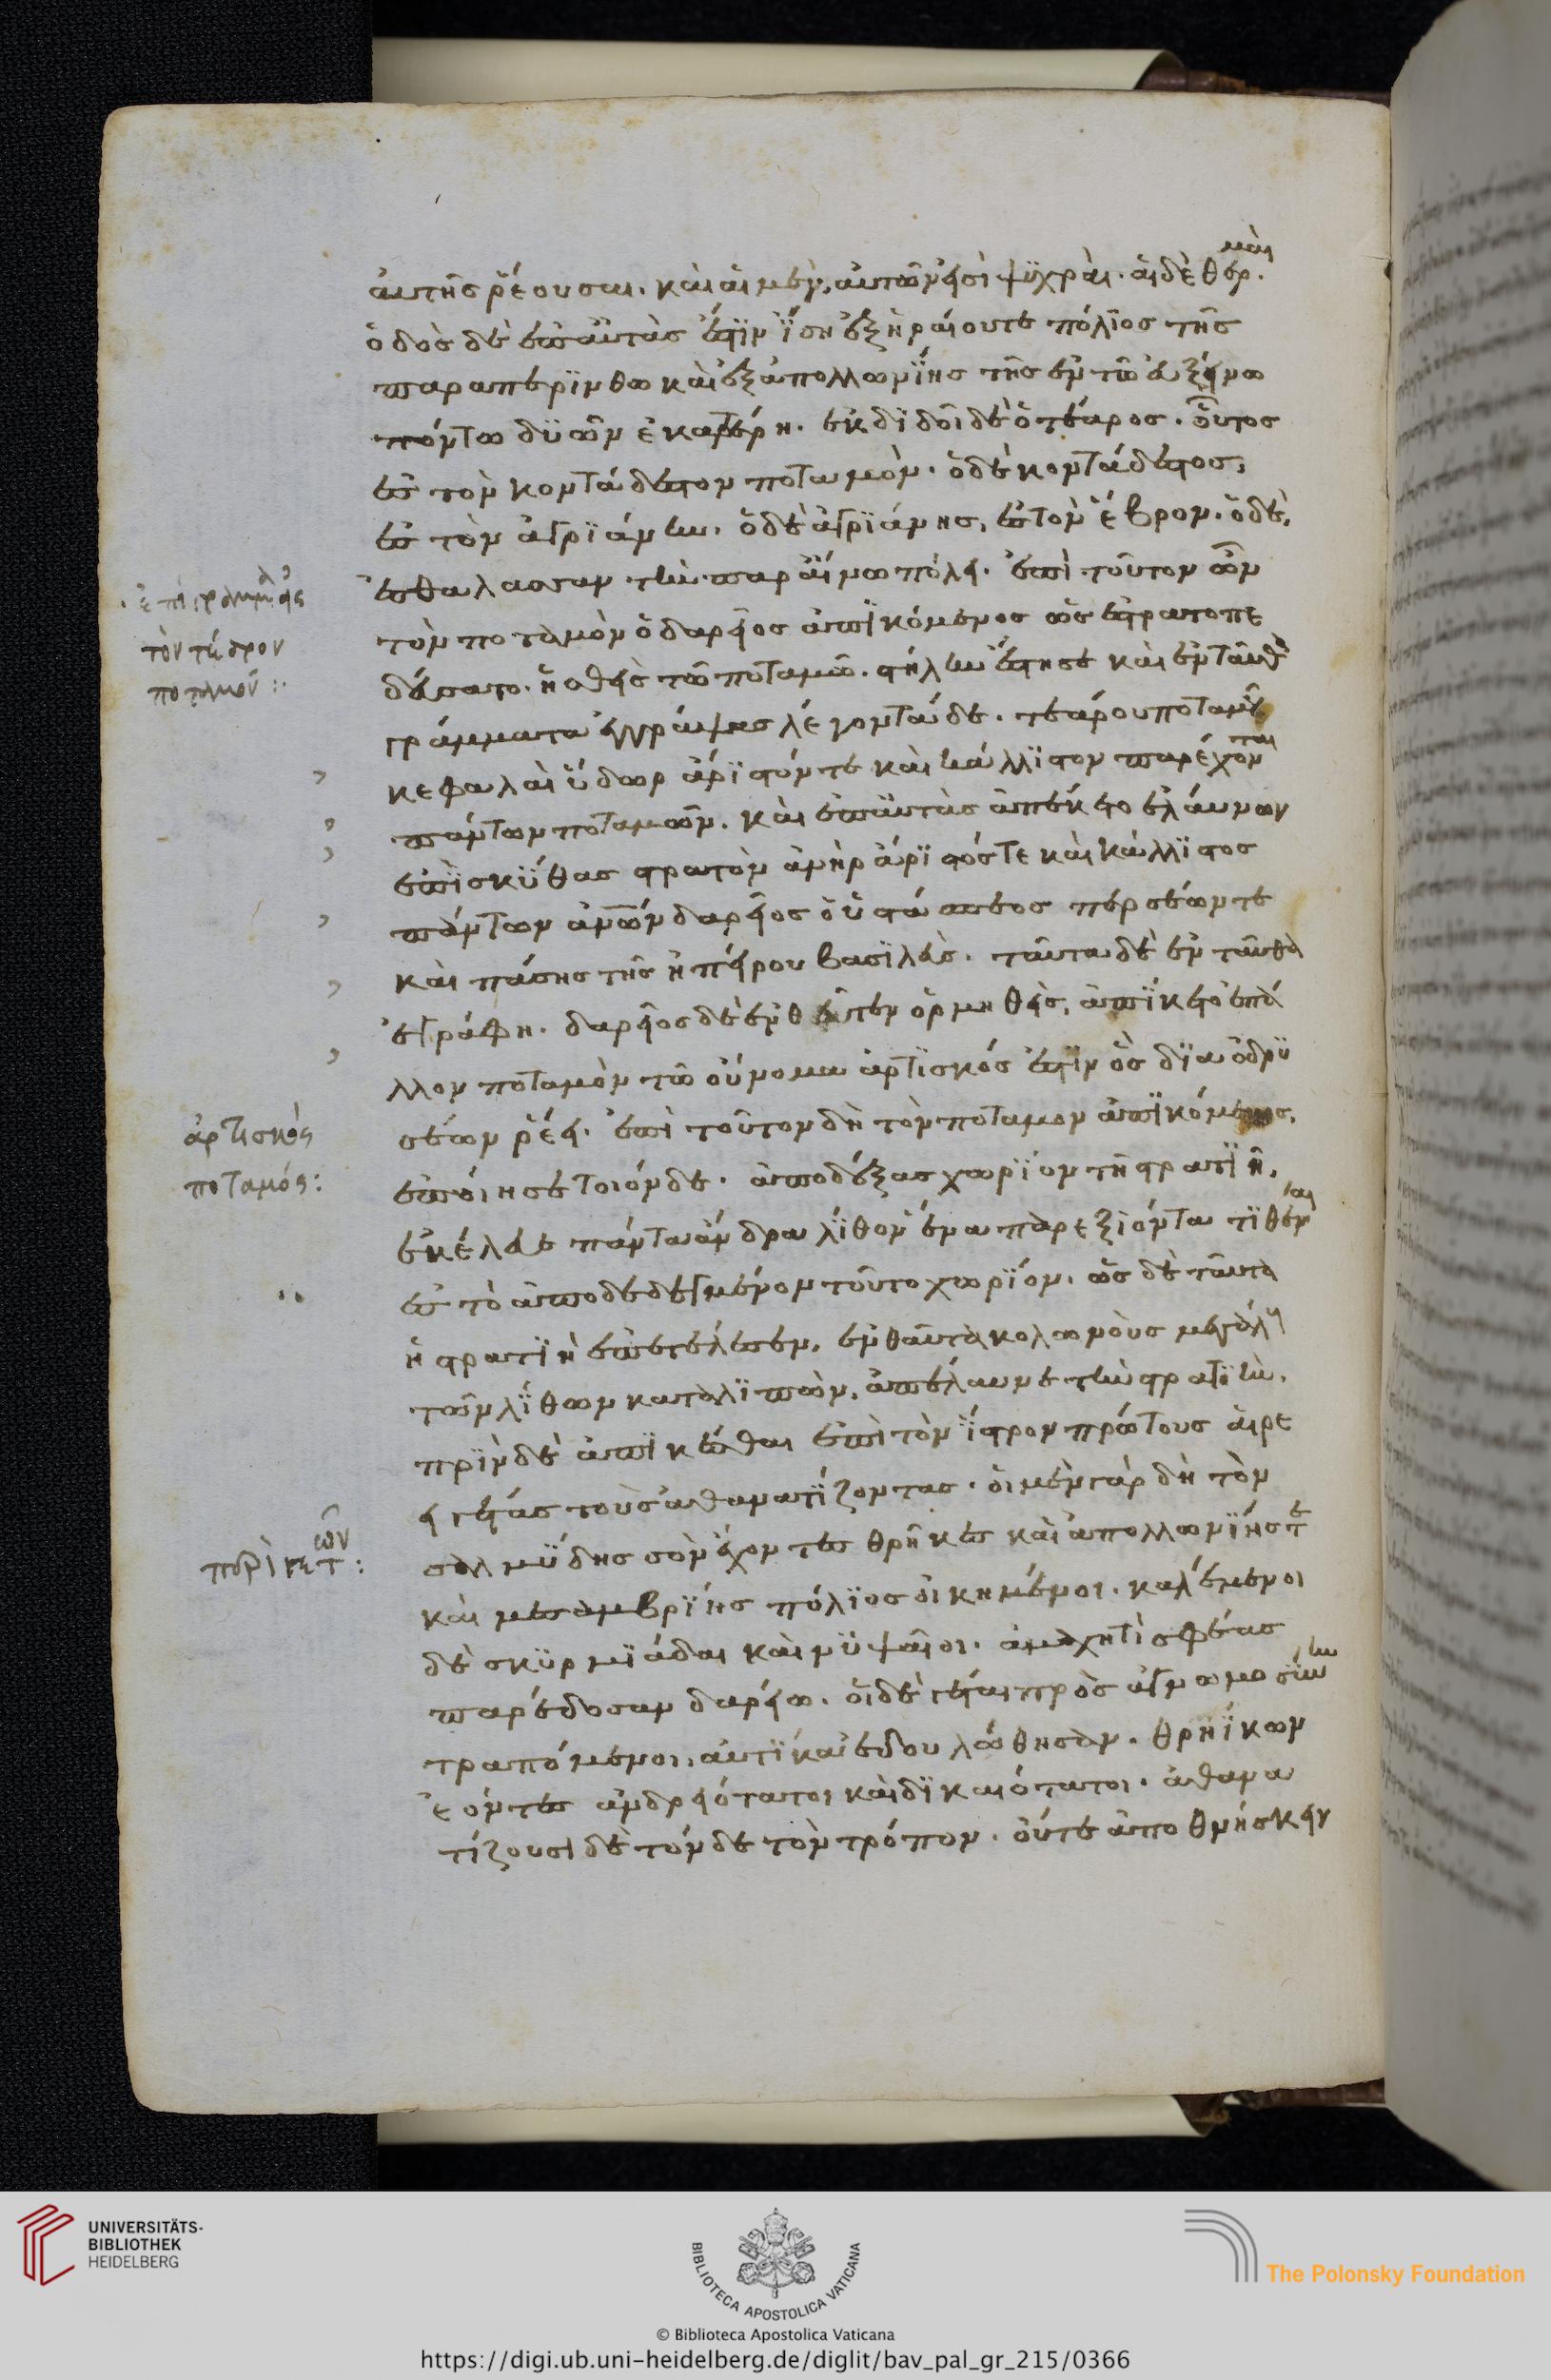 ἀυτῆς ῥέουσαι. καὶ αἱ μὲν, ἀυτῶν εἰσὶ ψϋχραὶ. αἱ δὲ θερμαὶ.
ὁδὸς δὲ ἐπ' ἀϋτὰς ἐστϊν ἴση ἐξ ἡραίου τε πόλϊος τῆς
παρα περΐνθω καὶ ἐξ ἀπολλωνΐης τῆς ἐν τῶ ἐυξείνω
πόντω δϋῶν ἑκατέρη. ἐκδϊδοῖ δὲ ὁ τέαρος. οὗτος
ἐς τὸν κοντάδεστον ποταμὸν. ὁ δὲ κοντάδεστος,
ἐς τὸν ἀγρϊάνην. ὁ δὲ ἀγρϊάνης, ἐς τὸν ἕβρον. ὁ δὲ,
ἐς θαλασσαν τὴν παρ' ἄϊνω πόλει. ἐπὶ τοῦτον ὦν
τὸν ποταμὸν ὁ δαρεῖος ἀπϊκόμενος ὡς ἐστρατοπε
δεύσατο. ἡσθεὶς τῶ ποταμῶ. στήλην ἔστησε καὶ ἐνταῦθα
γράμματα ἐγγράψας λέγοντα τάδε. τεάρου ποταμοῦ
κεφαλαὶ ὕδωρ ἄρϊστόν τε καὶ κάλλϊστον παρέχονται
πάντων ποταμῶν. καὶ ἐπ' ἀϋτὰς ἀπίκετο ἐλάυνων
ἐπΐ σκΰθας στρατὸν ἀνὴρ ἄρϊστός τε καὶ κάλλϊστος
πάντων ἀνῶν δαρεῖος ὁ ὑστάσπεος περσέων τε
καὶ πάσης τῆς ἠπείρου βασϊλεὺς. ταῦτα δὲ ἐνταῦθα
ἐγράφη. δαρεῖος δὲ ἐνθεῦτεν ὁρμηθεὶς, ἀπΐκετο ἐπ' ἄ
λλον ποταμὸν τῶ οὔνομα ἀρτϊσκός ἐστϊν ὃς δϊα ὀδρϋ
σέων ῥέει. ἐπὶ τοῦτον δὴ τὸν ποταμον ἀπϊκόμενος,
ἐποίησε τοιόνδε. ἀποδέξας χωρΐον τῆ στρατϊῆ,
ἐκέλευε πάντα ἄνδρα λΐθον ἕνα παρεξϊόντα τϊθέναι
ἐς τὸ ἀποδεδεγμένον τοῦτο χωρΐον. ὡς δὲ ταῦτα
ἡ στρατϊὴ ἐπετέλεσεν, ἐνθαῦτα κολωνοὺς μεγάλους
τῶν λΐθων καταλϊπὼν, ἀπέλαυνε τὴν στρατϊὴν.
πρϊν δὲ ἀπϊκέσθαι ἐπὶ τὸν ΐστρον πρώτους ἁιρέ
ει γέτας τοὺς ἀθανατΐζοντας. ὁι μὲν γὰρ δὴ τὸν
σαλμϋδησσὸν ἔχοντες θρήϊκες καὶ ἀπολλωνΐης τε
καὶ μεσαμβρΐης πόλϊος ὀικημένοι. καλέμενοι
δὲ σκϋρμϊάδαι καὶ νϋψαῖοι. ἀμαχητὶ σφέας
παρέδοσαν δαρείω. ὁι δὲ γέται πρὸς ἀγνωμοσΰνην
τραπόμενοι, ἀυτΐκα ἐδουλώθησαν. θρηΐκων
ἐόντες ἀνδρειότατοι καὶ δϊκαιότατοι. ἀθανα
τίζουσι δὲ τόνδε τὸν τρόπον. ὄυτε ἀποθνήσκειν
τὸν τέαρον
ποταμόν:
ἀρτισκὸς
ποταμός:
περὶ γετῶν:
UNIVERSITÄTS-
BIBLIOTHEK
HEIDELBERG
BIBLIOTECA APOSTOLICA VATICANA
The Polonsky Foundation
© Biblioteca Apostolica Vaticana
https://digi.ub.uni-heidelberg.de/diglit/bav_pal_gr_215/0366